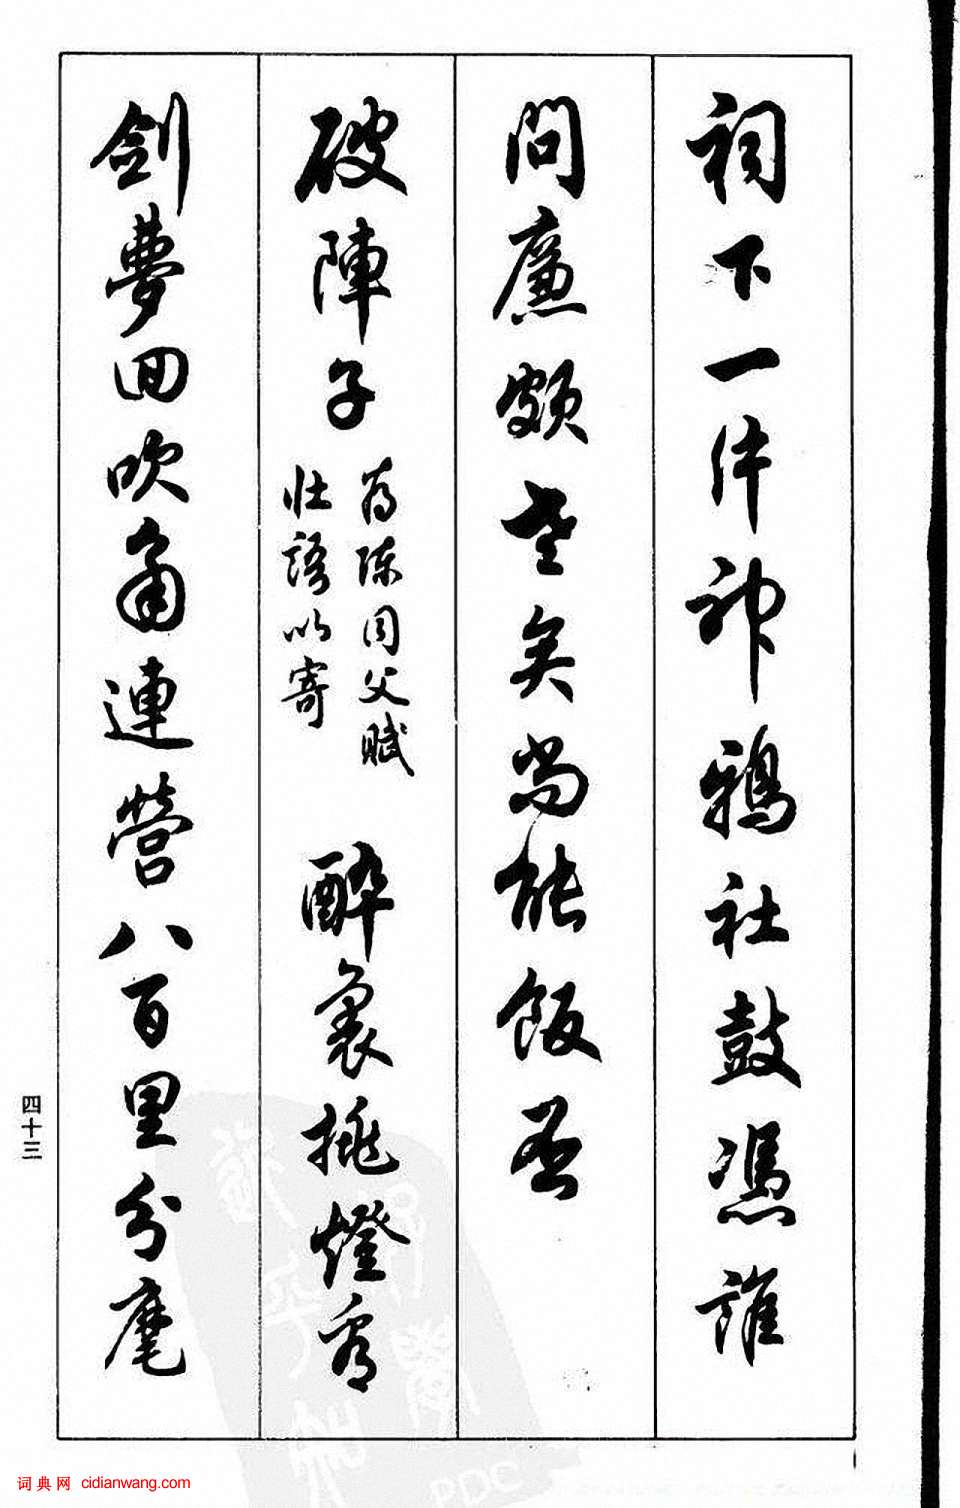 祠下一片神鴉社鼓憑誰
問廉頗老矣尚能飯否
破陣子
為陳同父賦
壮語以寄
醉裏挑燈看
劍夢回吹角連營八百里分麾
四十三
词典网 cidianwang.com
PDG